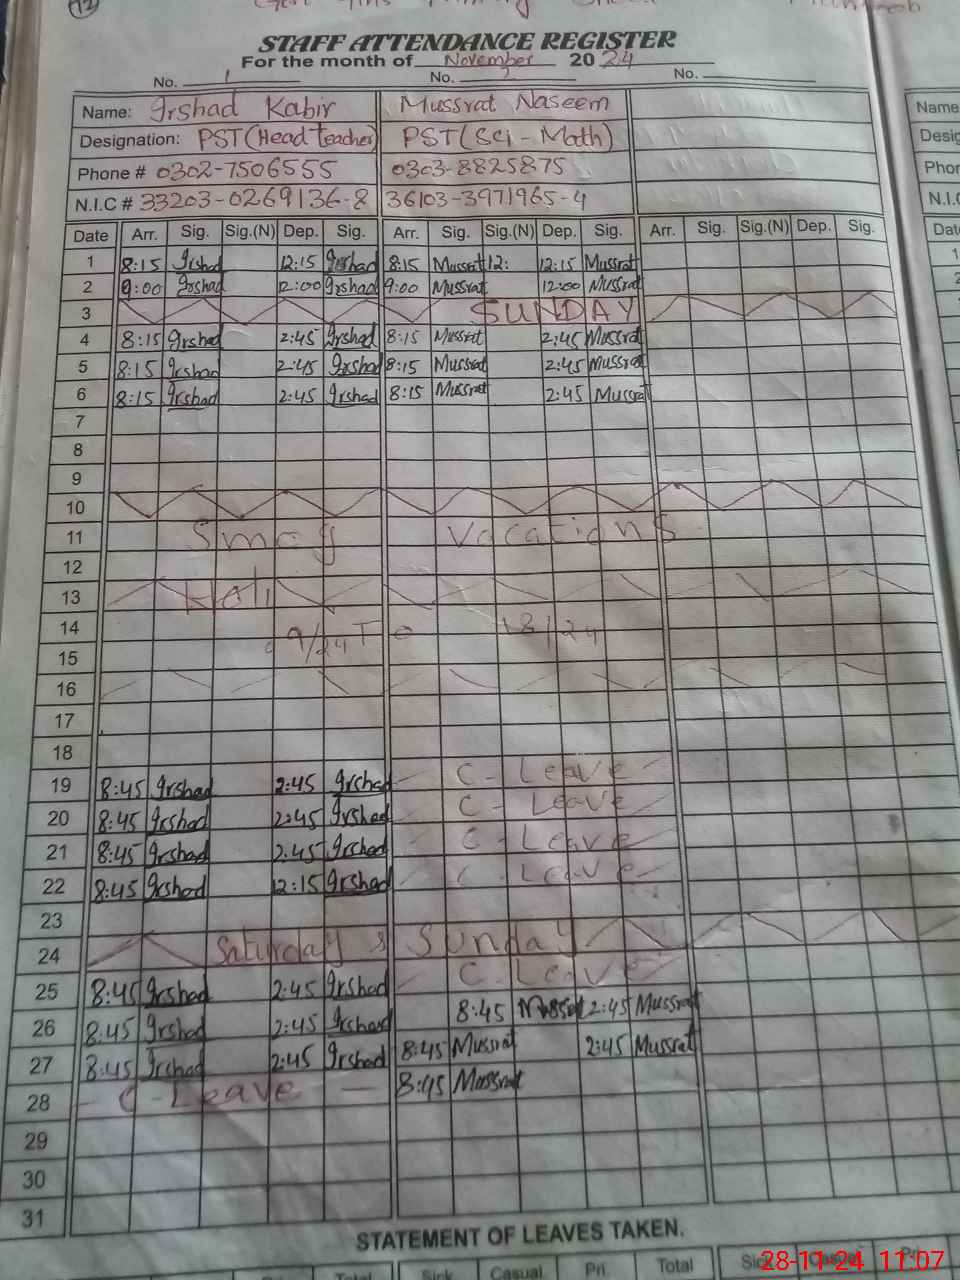 12
STAFF ATTENDANCE REGISTER
For the month of November 2024
No. 1 No. 2 No.
Name: Irshad Kabir Mussrat Naseem
Designation: PST(Head teacher) PST(Sci - Math)
Phone # 0302-7506555 0303-8825875
N.I.C # 33203-0269136-8 36103-3971965-4
Date Arr. Sig. Sig.(N) Dep. Sig. Arr. Sig. Sig.(N) Dep. Sig. Arr. Sig. Sig.(N) Dep. Sig.
1 8:15 Irshad 12:15 Irshad 8:15 Mussrat 12: 12:15 Mussrat
2 9:00 Irshad 12:00 Irshad 9:00 Mussrat 12:00 Mussrat
3 SUNDAY
4 8:15 Irshad 2:45 Irshad 8:15 Mussrat 2:45 Mussrat
5 8:15 Irshad 2:45 Irshad 8:15 Mussrat 2:45 Mussrat
6 8:15 Irshad 2:45 Irshad 8:15 Mussrat 2:45 Mussrat
7
8
9
10
11 Smog Vacations
12
13 Holi
14 9/24 To 18/24
15
16
17
18
19 8:45 Irshad 2:45 Irshad C - Leave
20 8:45 Irshad 2:45 Irshad C - Leave
21 8:45 Irshad 2:45 Irshad C - Leave
22 8:45 Irshad 12:15 Irshad C - Leave
23
24 Saturday & Sunday
25 8:45 Irshad 2:45 Irshad C - Leave
26 8:45 Irshad 2:45 Irshad 8:45 Mussrat 2:45 Mussrat
27 8:45 Irshad 2:45 Irshad 8:45 Mussrat 2:45 Mussrat
28 C - Leave 8:45 Mussrat
29
30
31
STATEMENT OF LEAVES TAKEN.
Total Sick Casual Pri. Total Sick Casual Pri.
28-11-24 11:07
Name
Desig
Phon
N.I.C
Date